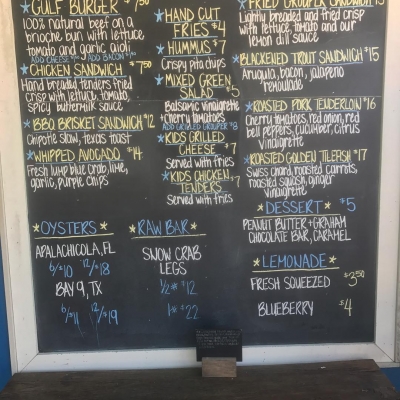 ★ GULF BURGER ★ $7.50
100% natural beef on a
brioche bun with lettuce
tomato and garlic aioli
ADD CHEESE ADD BACON
★ CHICKEN SANDWICH ★ $7.50
Hand breaded tenders fried
crisp with lettuce, tomato,
spicy buttermilk sauce
★ BBQ BRISKET SANDWICH $12
Chipotle slaw, texas toast
★ WHIPPED AVOCADO ★ $14
Fresh lump blue crab, lime,
garlic, purple chips
★ OYSTERS ★
APALACHICOLA, FL
6/$10 12/$18
BAY 9, TX
6/$11 12/$19
★ HAND CUT
FRIES ★ $4
★ HUMMUS ★ $7
Crispy pita chips
★ MIXED GREEN
SALAD ★ $5
Balsamic vinaigrette
+ cherry tomatoes
ADD GRILLED GROUPER $8
★ KIDS GRILLED
CHEESE ★ $7
Served with fries
★ KIDS CHICKEN
TENDERS $7
Served with fries
★ RAW BAR ★
SNOW CRAB
LEGS
1/2# $12
1# $22
★ FRIED GROUPER SANDWICH $15
Lightly breaded and fried crisp
with lettuce, tomato and our
lemon dill sauce
★ BLACKENED TROUT SANDWICH $15
Arugula, bacon, jalapeno
remoulade
★ ROASTED PORK TENDERLOIN $16
Cherry tomatoes, red onion, red
bell peppers, cucumber, citrus
vinaigrette
★ ROASTED GOLDEN TILEFISH $17
Swiss chard, roasted carrots,
roasted squash, ginger
vinaigrette
★ DESSERT ★ $5
PEANUT BUTTER + GRAHAM
CHOCOLATE BAR, CARAMEL
★ LEMONADE ★
FRESH SQUEEZED $3.50
BLUEBERRY $4